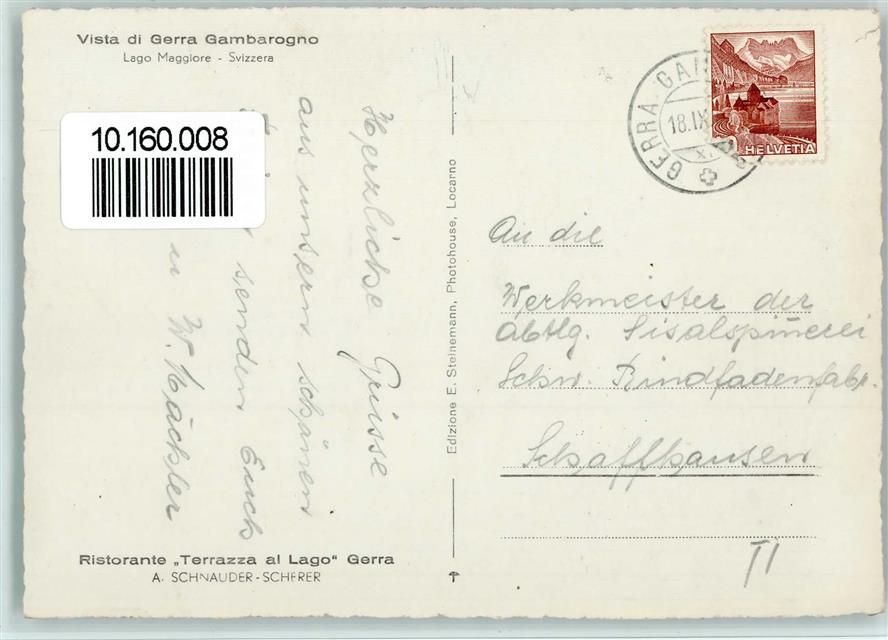 Vista di Gerra Gambarogno
Lago Maggiore - Svizzera
10.160.008
Herzliche Grüsse
aus unsern schönen
senden Euch
u W. Wächsler
Ristorante „Terrazza al Lago" Gerra
A. SCHNAUDER-SCHERER
Edizione E. Steinemann, Photohouse, Locarno
HELVETIA
GERRA
18.IX
An die
Werkmeister der
Abtlg. Sisalspinnerei
Schw. Bindfadenfabr.
Schaffhausen
TI